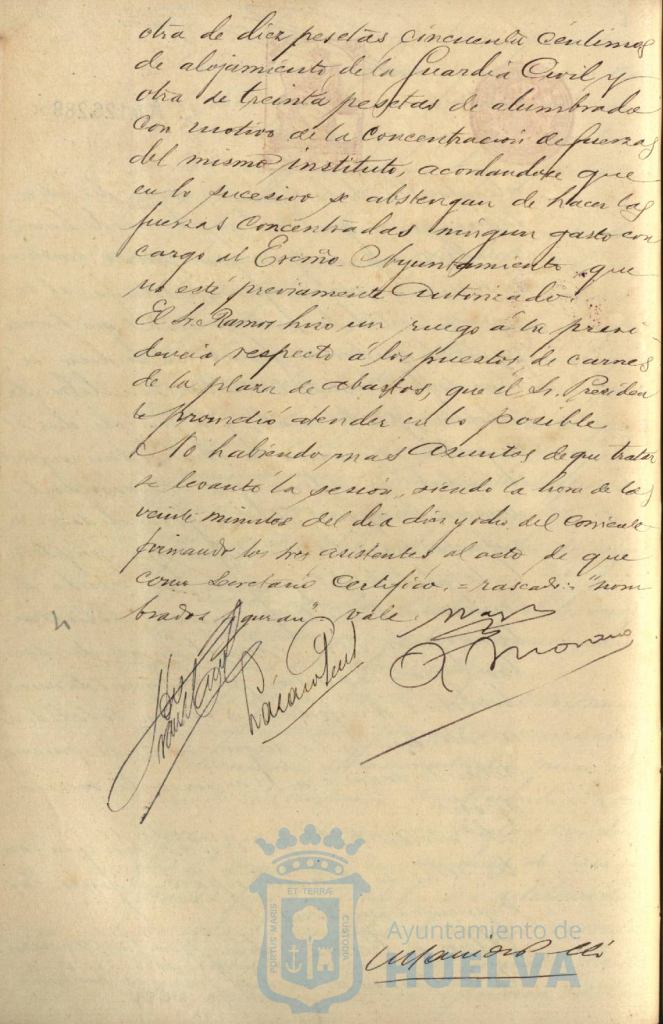 otra de diez pesetas cincuenta céntimos
de alojamiento de la Guardia Civil y
otra de treinta pesetas de alumbrado
con motivo de la concentracion de fuerzas
del mismo instituto, acordandose que
en lo sucesivo se abstengan de hacer las
fuerzas concentradas ningun gasto con
cargo al Excmo. Ayuntamiento que
no esté previamente autorizado.
El Sr. Ramos hizo un ruego á la presi
dencia respecto á los puestos de carnes
de la plaza de abastos, que el Sr. Presiden
te prometió atender en lo posible
No habiendo mas asuntos de que tratar
se levantó la sesión, siendo la hora de las
veinte minutos del dia diez y ocho del corriente
firmando los tres asistentes al acto de que
como Secretario Certifico. = rascado: = "nom
brados figuran" vale
Moreno
ET TERRÆ
PORTUS MARIS
CUSTODIA
Ayuntamiento de
HUELVA